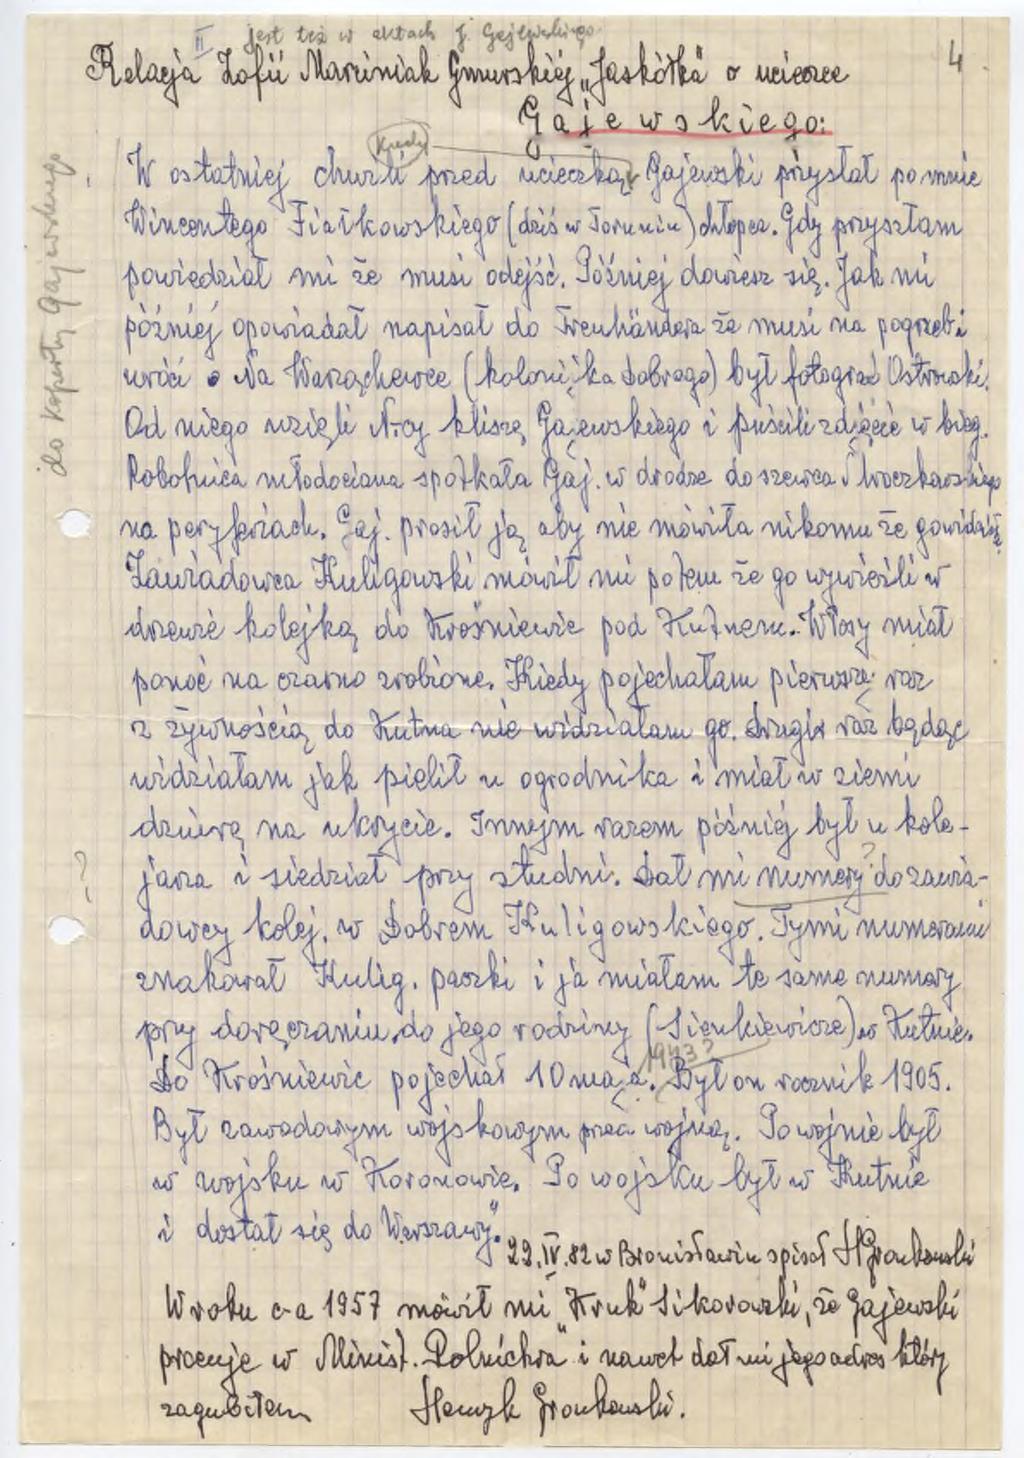 II jest też w aktach J. Gajewskiego
4
Relacja Zofii Marciniak Gmurskiej „Jaskółka" o ucieczce
Gajewskiego:
do koperty Gajewskiego
Kiedy
W ostatniej chwili przed ucieczką Gajewski przysłał po mnie
Wincentego Fiałkowskiego (dziś w Toruniu) chłopca. Gdy przyszłam
powiedział mi że musi odejść. Później dowiesz się. Jak mi
później opowiadał napisał do Treuhändera że musi na pogrzeb i
wróci. Na Warzachewce (kolonijka Dobrego) był fotograf Ostrowski.
Od niego wzięli N-cy kliszę Gajewskiego i puścili zdjęcie w bieg.
Robotnica młodociana spotkała Gaj. w drodze do szewca Mroczkowskiego
na peryferiach. Gaj. prosił ją aby nie mówiła nikomu że go widziała
Zawiadowca Kuligowski mówił mi potem że go wywieźli w
drzewie kolejką do Krośniewic pod Kutnem. Włosy miał
ponoć na czarno zrobione. Kiedy pojechałam pierwszy raz
z żywnością do Kutna nie widziałam go. Drugi raz będąc
widziałam jak pielił u ogrodnika i miał w ziemi
dziurę na ukrycie. Innym razem później był u kole-
jarza i siedział przy studni. Dał mi numery ? do zawia-
dowcy kolej. w Dobrem Kuligowskiego. Tymi numerami
znakował Kulig. paczki i ja miałam te same numery
przy doręczaniu do jego rodziny (Sienkiewicze) w Kutnie.
1943?
Do Krośniewic pojechał 10 maja. Był on rocznik 1905.
Był zawodowym wojskowym przed wojną. Po wojnie był
w wojsku w Koronowie. Po wojsku był w Kutnie
i dostał się do Warszawy".
29.IV.82 w Bronisławiu spisał H Gronkowski
W roku c-a 1957 mówił mi „Kruk" Sikorowski, że Gajewski
pracuje w Minist. Rolnictwa i nawet dał mi jego adres który
zagubiłem Henryk Gronkowski.